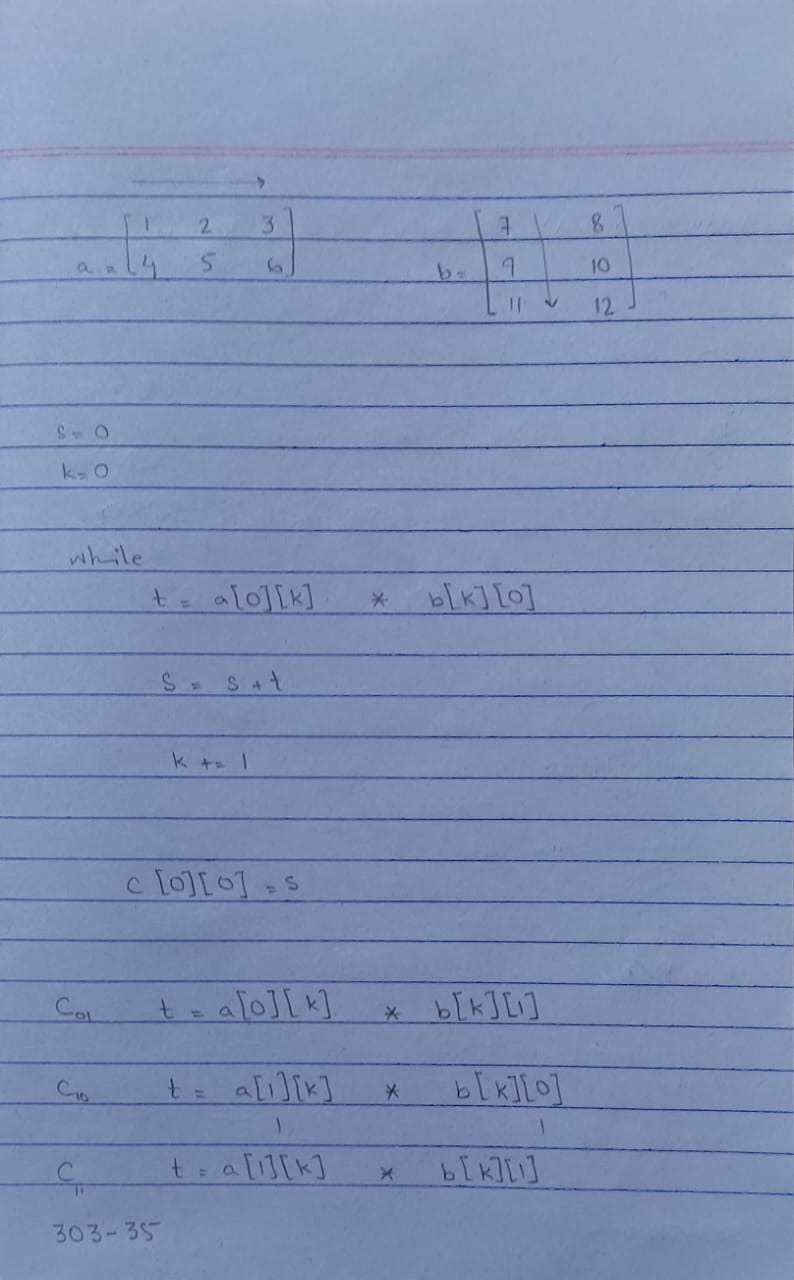 a = [1 2 3
4 5 6]
b = [7 8
9 10
11 12]
s = 0
k = 0
while
t = a[0][k] * b[k][0]
s = s + t
k += 1
c[0][0] = s
C01 t = a[0][k] * b[k][1]
C10 t = a[1][k] * b[k][0]
1 1
C11 t = a[1][k] * b[k][1]
303-35